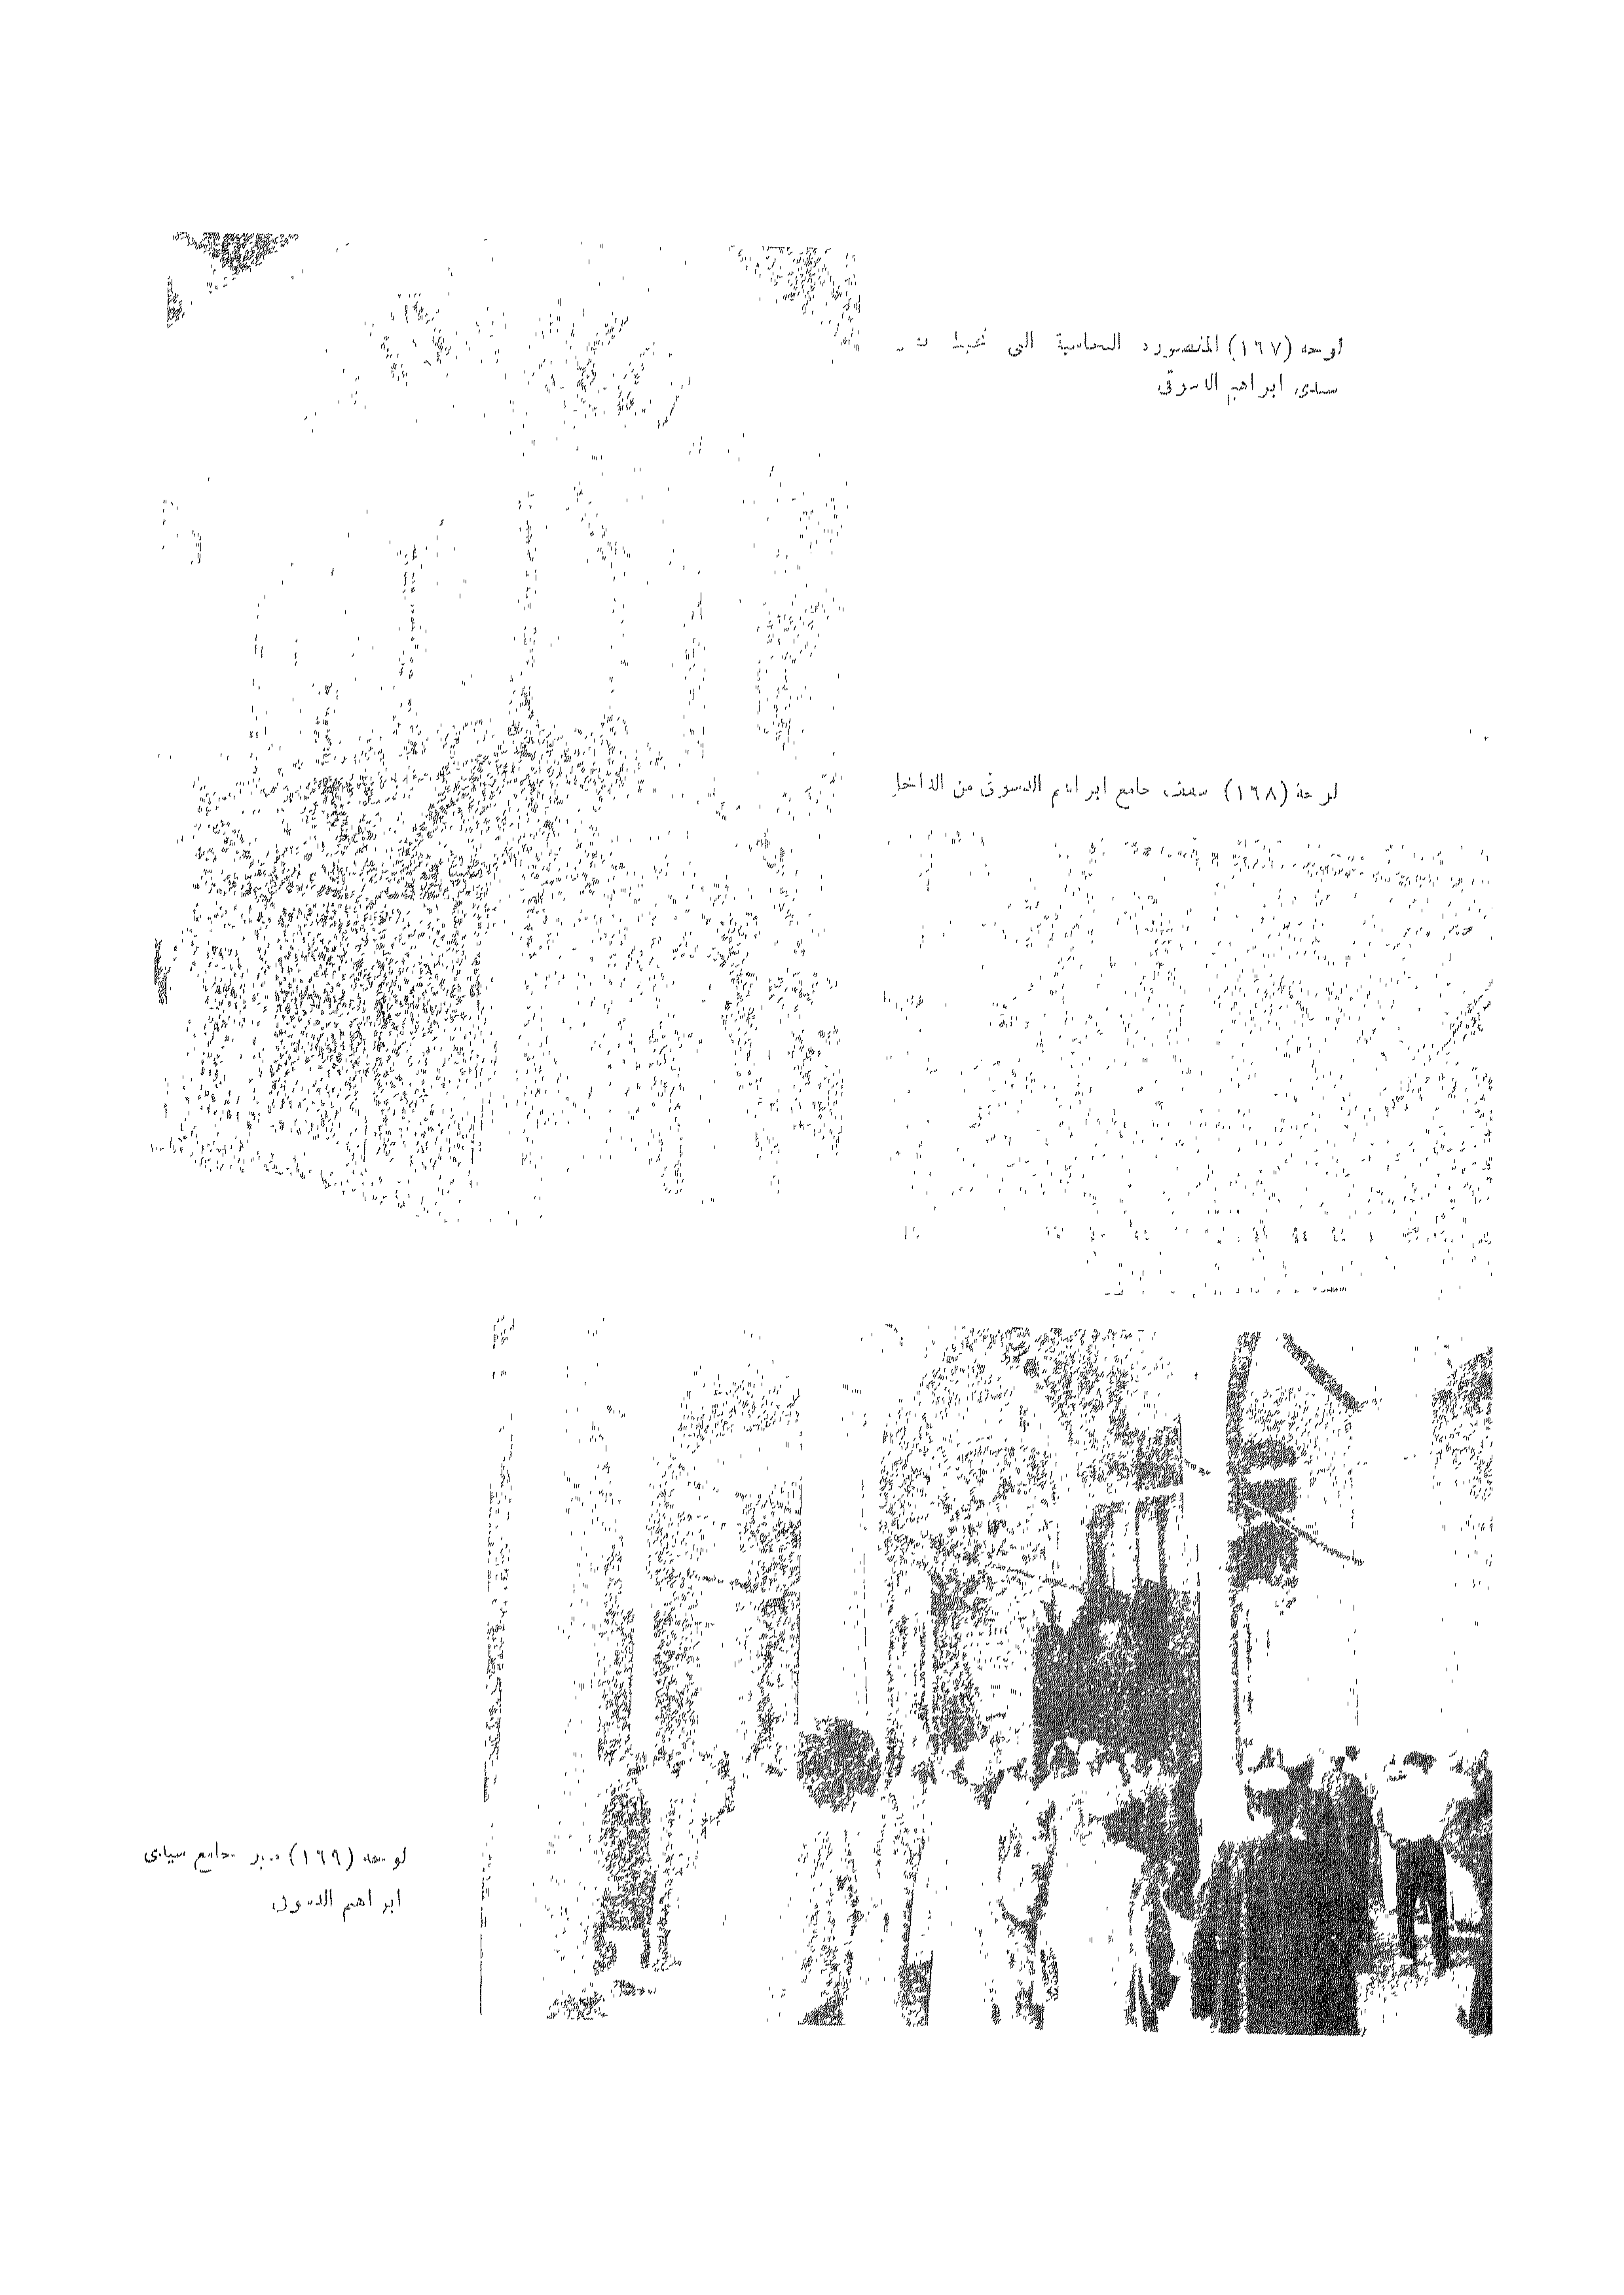 لوحه (١٦٧) المقصورة النحاسية التى تحيط
سيدى ابراهيم الدسوقى
لوحة (١٦٨) سقف جامع ابراهيم الدسوقى من الداخل
لوحه (١٦٩) منبر جامع سيدى
ابراهيم الدسوقى